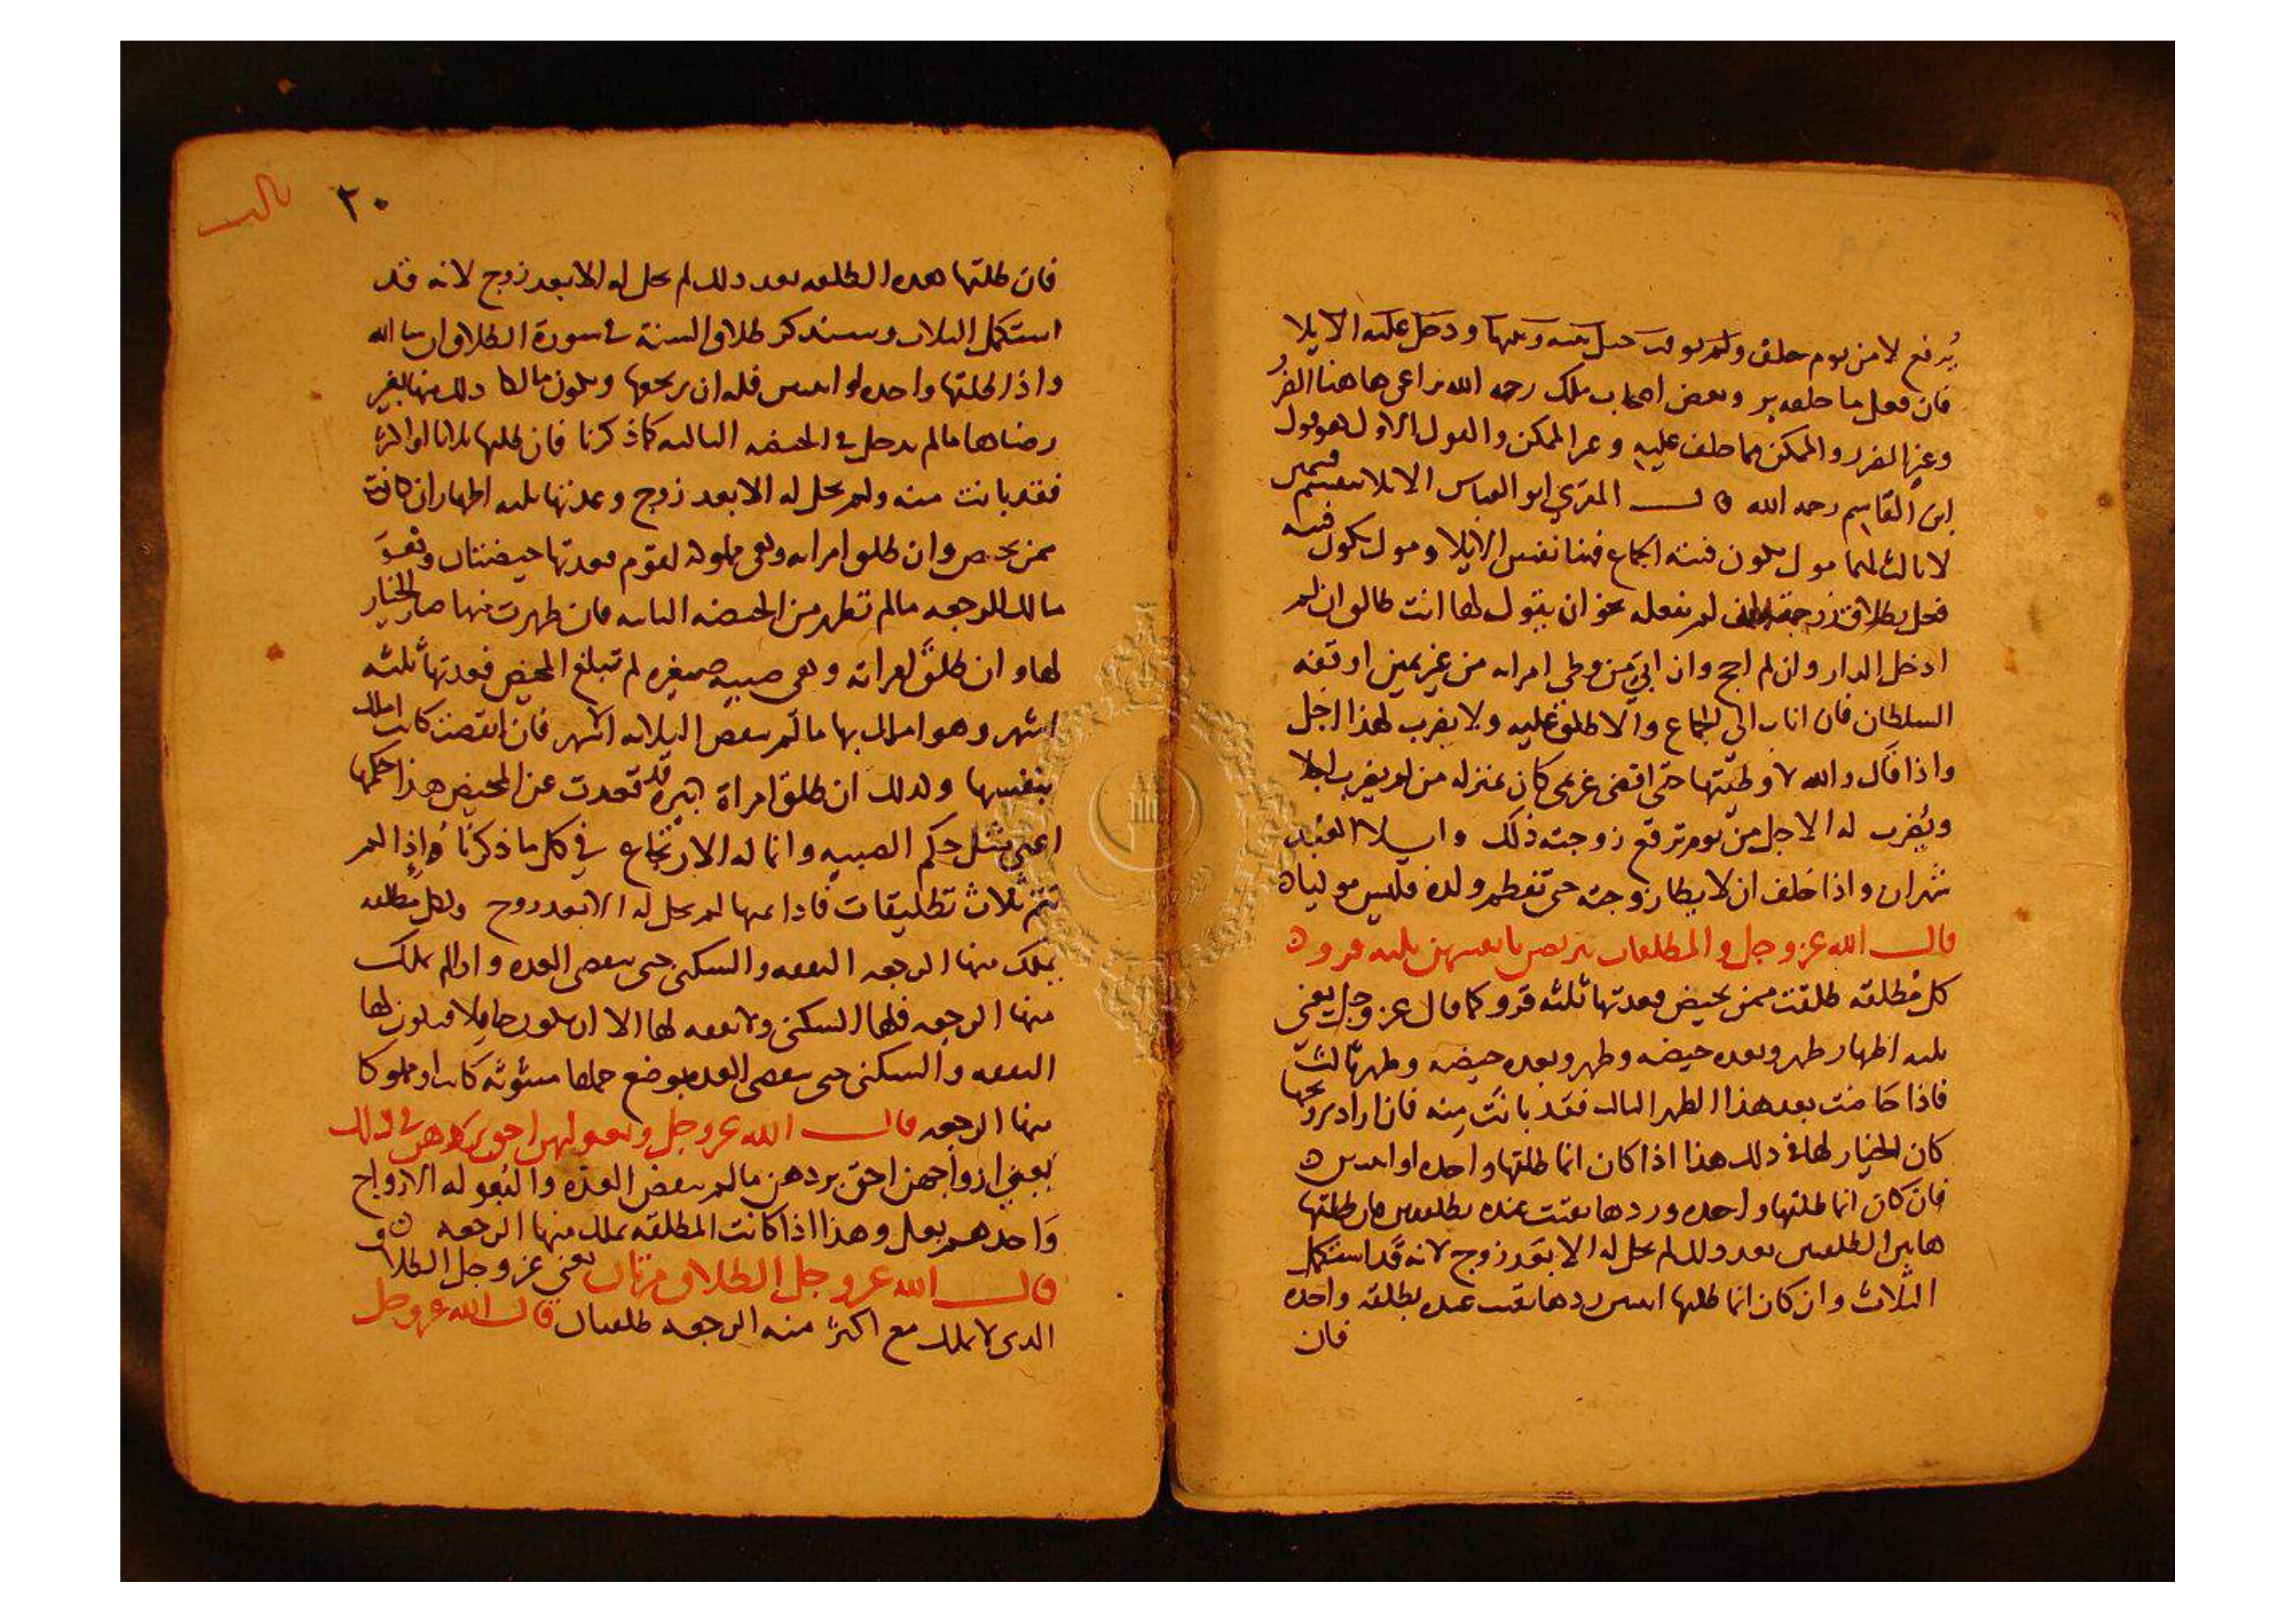 يُرفع لا من يوم حلف ولم يوقت حيل بينه وبينها ودخل عليه الايلا
فان فعل ما حلف بر وبعض اصحاب ملك رحمه الله يراعي هاهنا الفرر
وغير الفرر والممكن مما حلف عليه وغير الممكن والقول الاول هو قول
ابن القاسم رحمه الله قال المقري ابو العباس الايلا ينقسم قسمين
لا ثالث لهما مول يكون فيئه الجماع فهنا نفس الايلا ومول يكون فيئه
فحل بطلاق زوجته لم يفعله نحو ان يقول لها انت طالق ان لم
ادخل الدار وان لم احج وان ابي من وطي امراته من غير يمين اوقفه
السلطان فان اناب الى الجماع والا طلق عليه ولا يضرب لهذا اجل
واذا قال والله لا وطيتها حتى اقضى غريمي كان بمنزله من لم يضرب اجلا
ويضرب له الاجل من يوم ترفع زوجته ذلك وايلا العبد
شهران واذا حلف ان لا يطا زوجته حتى تفطم ولده فليس موليا
قال الله عز وجل والمطلقات يتربصن بانفسهن ثلثه قروء
كل مطلقه طلقت ممن يحيض فعدتها ثلثه قروء كما قال عز وجل يعني
ثلثه اطهار طهر وبعده حيضه وطهر وبعده حيضه وطهر ثالث
فاذا حاضت بعد هذا الطهر الثالث فقد بانت منه فان اراد تزويجها
كان الخيار لها في ذلك هذا اذا كان انما طلقها واحده او اثنتين
فان كان انما طلقها واحده وردها بقيت عنده بطلقتين فان طلقها
هاتين الطلقتين بعد ذلك لم تحل له الا بعد زوج لانه قد استكمل
الثلاث وان كان انما طلقها اثنتين ردها بقيت عنده بطلقه واحده
فان
٢٠
ثالث
فان طلقها هذه الطلقه بعد ذلك لم تحل له الا بعد زوج لانه قد
استكمل الثلاث وسنذكر طلاق السنة في سورة الطلاق ان شا الله
واذا طلقها واحده او اثنتين فله ان يرتجعها ويكون مالكا ذلك منها بغير
رضاها ما لم تدخل في الحيضه الثالثه كما ذكرنا فان طلقها ثلاثا او اكثر
فقد بانت منه ولم تحل له الا بعد زوج وعدتها ثلثه اطهار ان كانت
ممن تحيض وان طلق امراته وهي مملوكه لقوم فعدتها حيضتان وهو
مالك للرجعه ما لم تطهر من الحيضه الثانيه فان طهرت منها صار الخيار
لها وان طلق امراته وهي صبيه صغيره لم تبلغ المحيض فعدتها ثلثه
اشهر وهو املك بها ما لم تنقض الثلاثه اشهر فان انقضت كانت املك
بنفسها وكذلك ان طلق امراة كبيره قد قعدت عن المحيض هذا حكمها
اعني مثل حكم الصبيه وانما له الارتجاع في كل ما ذكرنا اذا لم
تتم ثلاث تطليقات فاذا تمها لم تحل له الا بعد زوج ولكل مطلقه
يملك منها الرجعه النفقه والسكنى حتى تنقضي العده واذا لم يملك
منها الرجعه فلها السكنى ولا نفقه لها الا ان تكون حاملا فيكون لها
النفقه والسكنى حتى تنقضي العده بوضع حملها مبتوته كانت او مملوكا
منها الرجعه قال الله عز وجل وبعولتهن احق بردهن في ذلك
يعني ازواجهن احق بردهن ما لم تنقض العده والبعوله الازواج
واحدهم بعل وهذا اذا كانت المطلقه يملك منها الرجعه
قال الله عز وجل الطلاق مرتان يعني عز وجل الطلاق
الذي لا يملك مع اكثر منه الرجعه طلقتان قال الله عز وجل